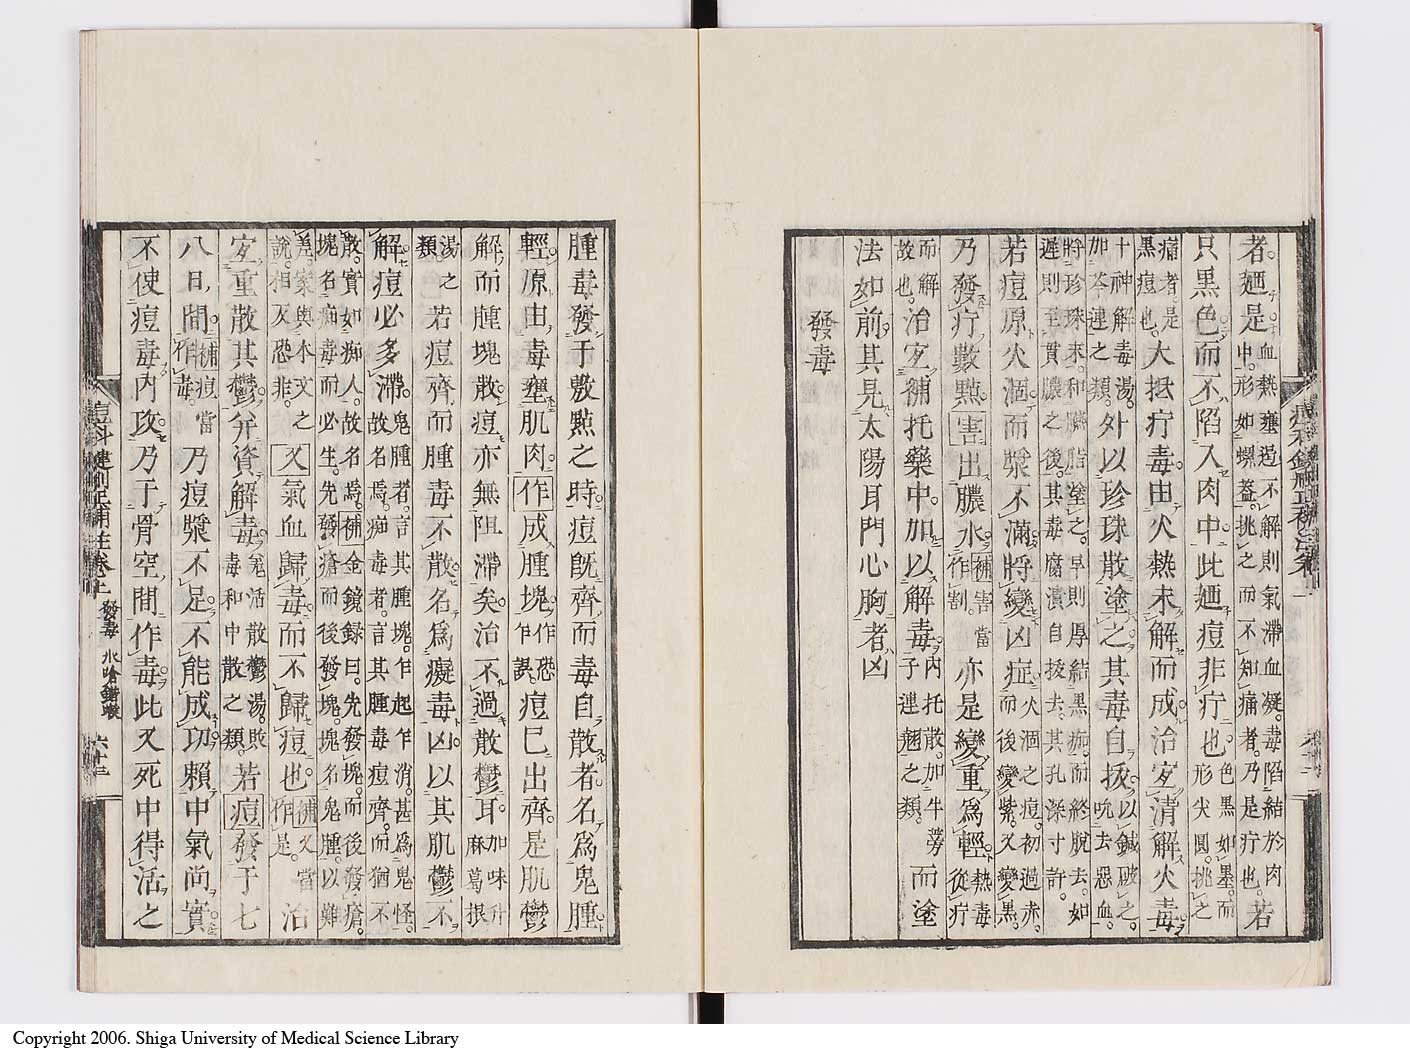 者廼是血熱壅遏不解則氣滯血凝毒陷結於肉
中形如螺蓋挑之而不知痛者乃是疔也若
只黒色而不陷入肉中此廼痘非疔也色黒如墨而
形尖圓挑之
痛者是
黒痘也大抵疔毒由火熱未解而成治宜清解火毒
十神解毒湯
加芩連之類外以珍珠散塗之其毒自拔以鍼破之
吮去惡血
將珍珠末和臙脂塗之早則厚結黒痂而終脱去如
遲則至貫膿之後其毒腐潰自拔去其孔深寸許
若痘原火涸而漿不滿將變凶症火涸之痘初過赤
而後變紫又變黒
乃發疔數點害出膿水補害當
作割亦是變重爲輕熱毒
從疔
而解
故也治宜補托藥中加以解毒内托散加牛蒡
子連翹之類而塗
法如前其見太陽耳門心胸者凶
發毒
腫毒發于敷㸃之時痘既齊而毒自散者名爲鬼腫
輕原由毒壅肌肉作成腫塊作恐
乍誤痘已出齊是肌鬱
解而腫塊散痘亦無阻滯矣治不過散鬱耳加味升
麻葛根
湯之
類若痘齊而腫毒不散名爲癡毒凶以其肌鬱不
解痘必多滯鬼腫者言其腫塊乍起乍消甚爲鬼怪
故名焉痴毒者言其腫毒痘齊而猶不
散實如痴人故名焉補金鏡録曰先發塊而後發瘡
塊名痴毒而必生先發瘡而後發塊塊名鬼腫以難
差家與本文之
説相反恐非又氣血歸毒而不歸痘也補又當
作是治
宜重散其鬱并資解毒寛活散鬱湯敗
毒和中散之類若痘發于七
八日間補痘當
作毒乃痘漿不足不能成功賴中氣尚實
不使痘毒内攻乃于骨空間作毒此又死中得活之
痘科鍵刪正補註卷上 發毒 水嗆錯喉 六十三